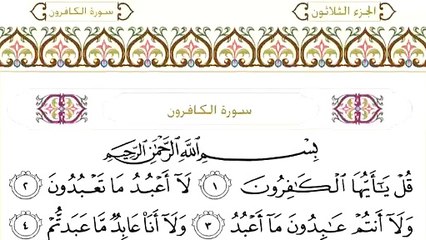 الجزء الثلاثون
سورة الكافرون
سورة الكافرون
بِسْمِ اللَّهِ الرَّحْمَٰنِ الرَّحِيمِ
قُلْ يَٰٓأَيُّهَا ٱلْكَٰفِرُونَ ١ لَآ أَعْبُدُ مَا تَعْبُدُونَ ٢
وَلَآ أَنتُمْ عَٰبِدُونَ مَآ أَعْبُدُ ٣ وَلَآ أَنَا۠ عَابِدٌ مَّا عَبَدتُّمْ ٤